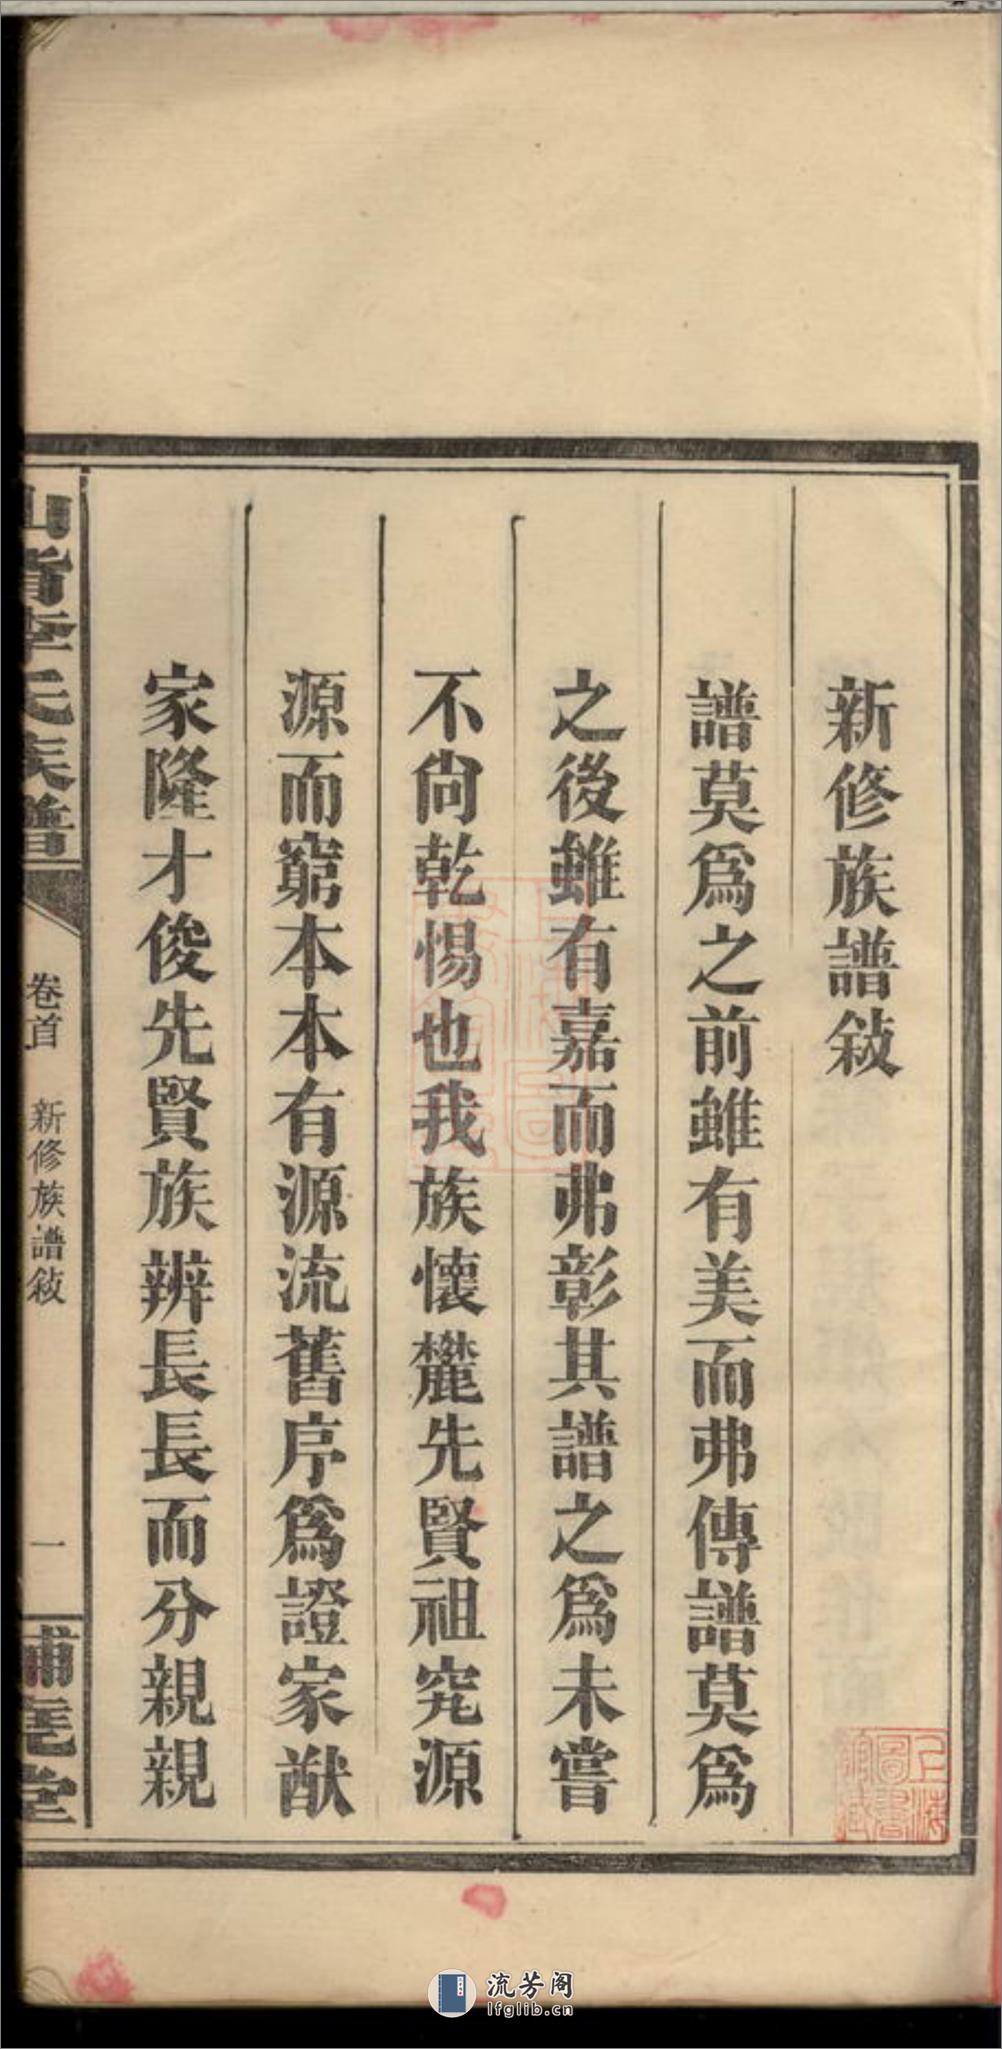 新修族譜敍
譜莫爲之前雖有美而弗傳譜莫爲
之後雖有嘉而弗彰其譜之爲未嘗
不尙乾惕也我族懷麓先賢祖究源
源而窮本本有源流舊序爲證家猷
家隆才俊先賢族辨長長而分親親
李氏族譜
卷首 新修族譜敍 一
堂
上海圖書館藏
流芳阁
lfglib.cn